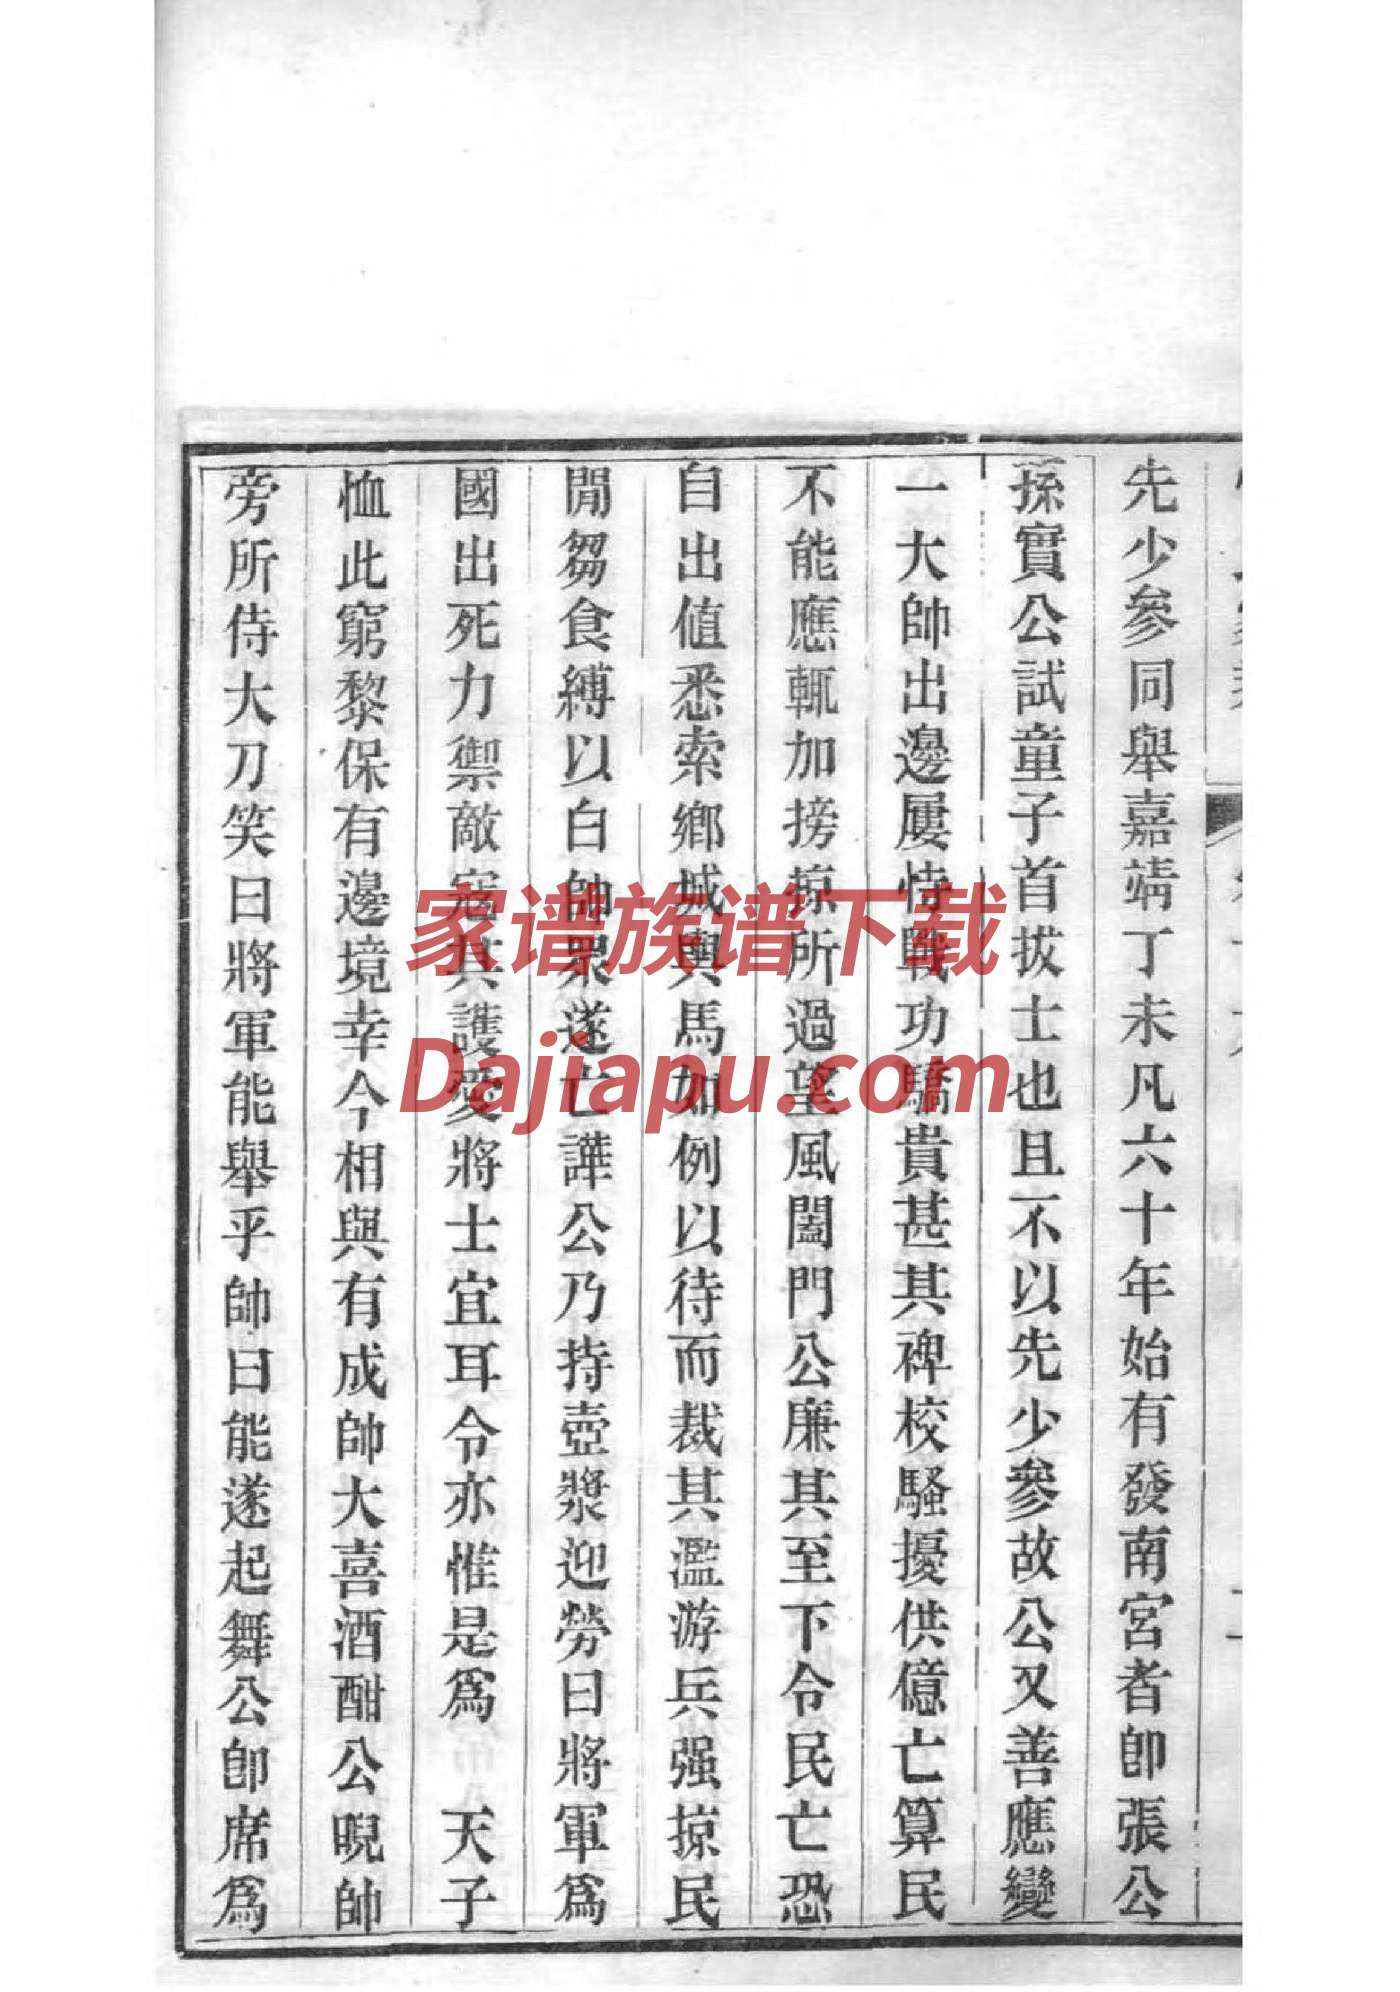 先少參同舉嘉靖丁未凡六十年始有發南宮者卽張公
孫實公試童子首拔士也且不以先少參故公又善應變
一大帥出邊屢恃戰功驕貴甚其裨校騷擾供億亡算民
不能應輒加搒掠所過望風闔門公廉其至下令民亡恐
自出値悉索鄉城輿馬如例以待而裁其濫游兵强掠民
閒芻食縛以白帥眾遂亡譁公乃持壺漿迎勞曰將軍爲
國出死力禦敵寇其護愛將士宜耳令亦惟是爲 天子
恤此窮黎保有邊境幸今相與有成帥大喜酒酣公睨帥
旁所侍大刀笑曰將軍能舉乎帥曰能遂起舞公卽席爲
家谱族谱下载
Dajiapu.com